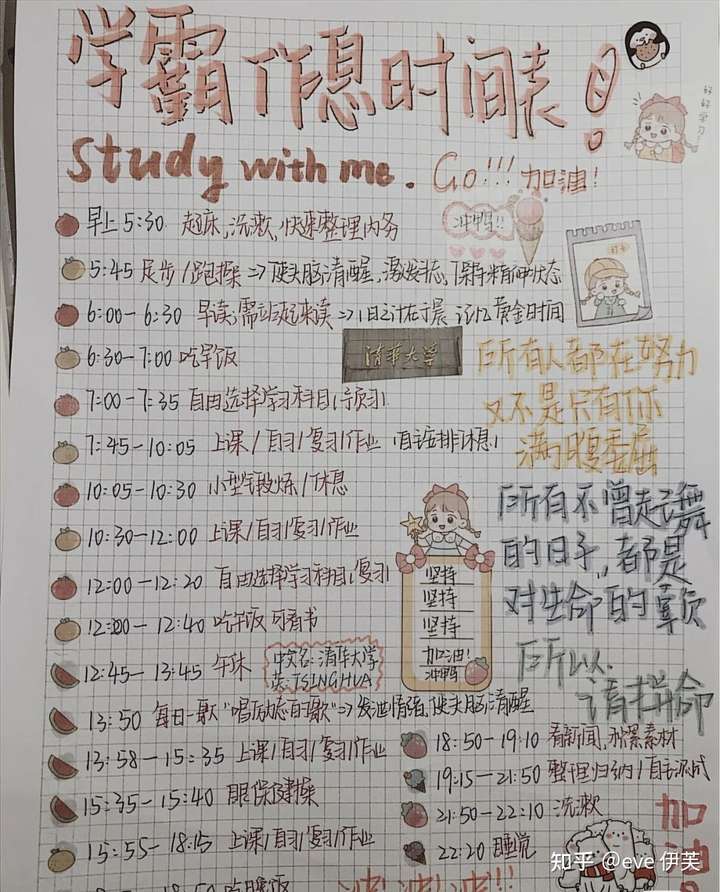 学霸作息时间表!
好好学习
study with me. Go!!! 加油!
早上5:30 起床,洗漱,快速整理内务
冲鸭!!
5:45 足步/跑操=>使头脑清醒,激发状态,保持精神状态
6:00-6:30 早读;需站起来读=>1日之计在于晨 记忆黄金时间
6:30-7:00 吃早饭
清华大学
所有人都在努力
又不是只有你
满腹委屈
7:00-7:35 自由选择学习科目,预习
7:45-10:05 上课/自习/复习/作业
10:05-10:30 小型锻炼/休息
10:30-12:00 上课/自习/复习/作业
所有不曾起舞
的日子,都是
对生命的辜负
所以
请拼命
坚持
坚持
坚持
加油!
冲鸭
12:00-12:20 自由选择学习科目,复习
12:20-12:40 吃午饭 可看书
12:45-13:45 午休
中文名:清华大学
英:TSINGHUA
13:50 每日一歌"唱励志的歌"=>发泄情绪,使头脑清醒
13:58-15:35 上课/自习/复习/作业
15:35-15:40 眼保健操
15:55-18:15 上课/自习/复习/作业
吃晚饭
18:50-19:10 看新闻,积累素材
19:15-21:50 整理归纳/自主完成
21:50-22:10 洗漱
22:20 睡觉
加油
冲!冲!冲!!
知乎 @eve 伊芙